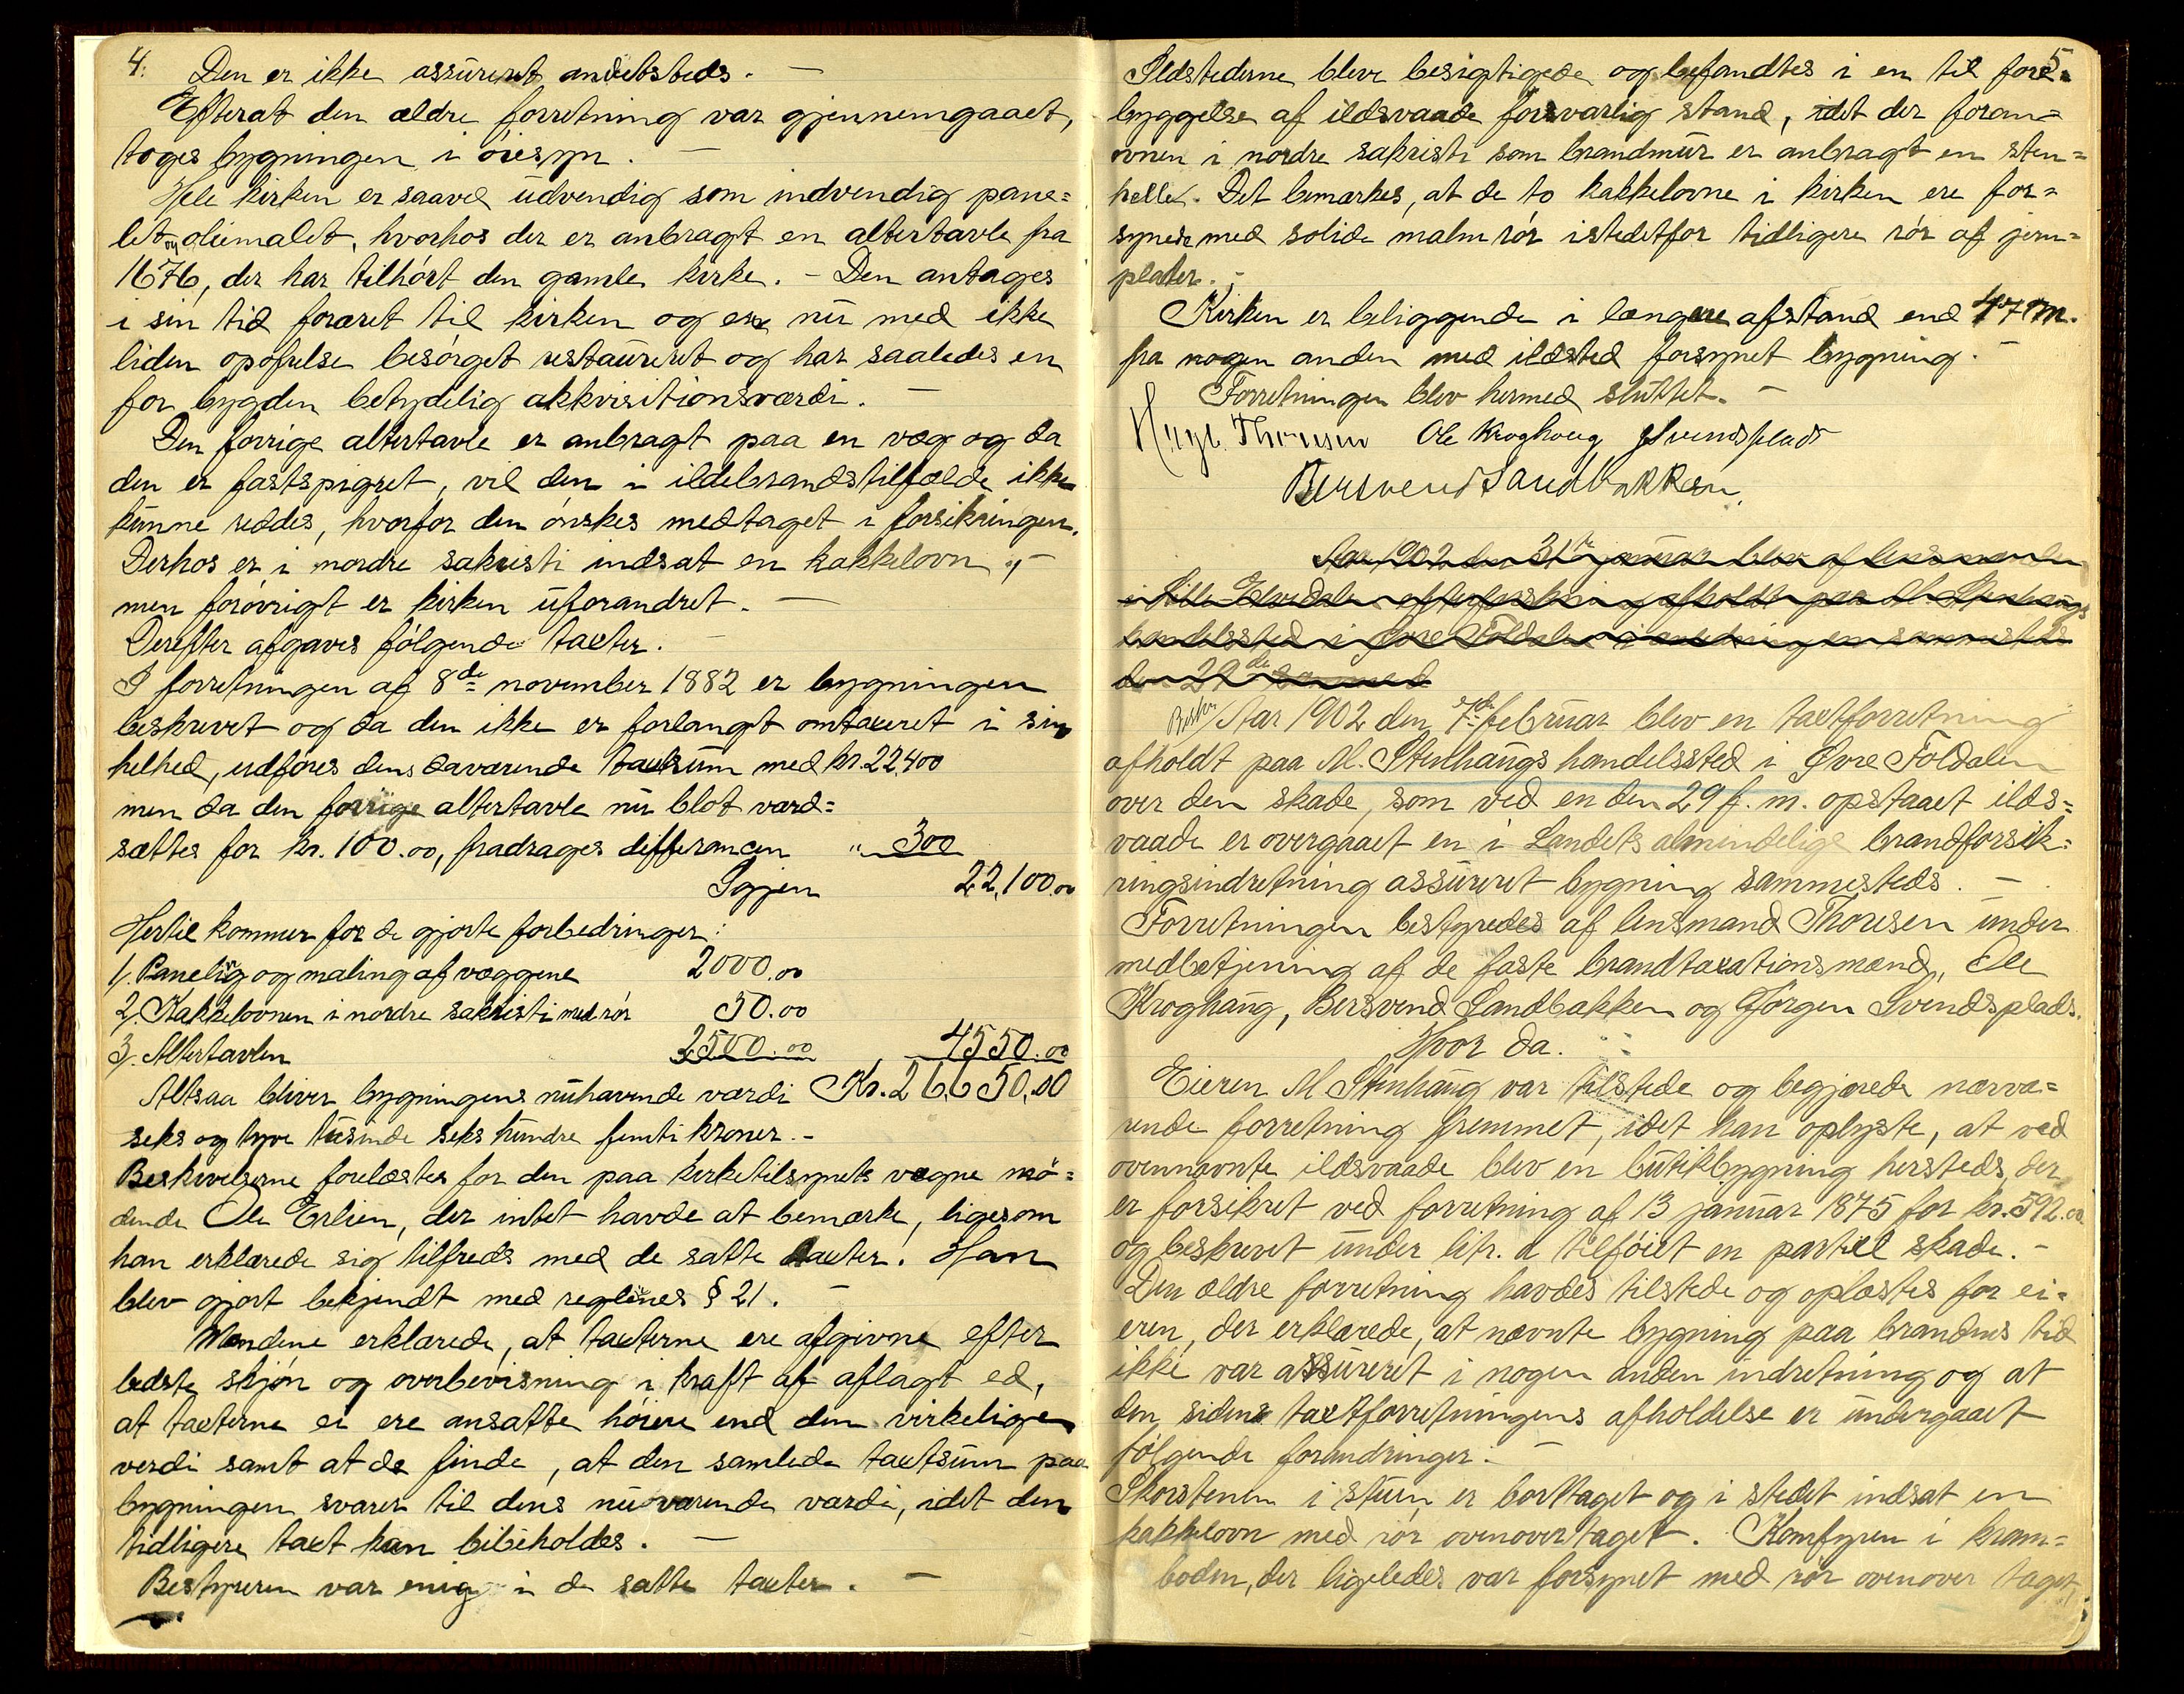 4.
Den er ikke assureret andetsteds. —
Efterat den ældre forretning var gjennemgaaet,
toges bygningen i øiesyn. —
Hele kirken er saavel udvendig som indvendig pane=
let og oliemalet, hvorhos der er anbragt en altertavle fra
1676, der har tilhørt den gamle kirke. – Den antages
i sin tid foræret til kirken og er nu med ikke
liden opofrelse besørget restaureret og har saaledes en
for bygden betydelig akkvisitionsværdi. —
Den forrige altertavle er anbragt paa en væg og da
den er fastspigret, vil den i ildebrandstilfælde ikke
kunne reddes, hvorfor den ønskes medtaget i forsikringen.
Derhos er i nordre sakristi indsat en kakkelovn, –
men forøvrigt er kirken uforandret. —
Derefter afgaves følgende taxter. —
I forretningen af 8de november 1882 er bygningen
beskrevet og da den ikke er forlangt omtaxeret i sin
helhed, udføres dens daværende taxtsum med kr. 22400
men da den forrige altertavle nu blot værd=
sættes for kr. 100.00, fradrages differancen " 300
Igjen 22,100.00
Hertil kommer for de gjorte forbedringer:
1). Paneling og maling af væggene 2000.00
2). Kakkelovnen i nordre sakristi med rør 50.00
3). Altertavlen 2500.00 , 4550.00
Altsaa bliver bygningens nuhavende værdi Kr. 26,650.00
seks og tyve tusinde seks hundre femti kroner. –
Beskrivelserne forelæstes for den paa kirketilsynets vegne mø=
dende Ole Erlien, der intet havde at bemærke, ligesom
han erklærede sig tilfreds med de satte taxter. Han
blev gjort bekjendt med reglenes § 21. —
Mændene erklærede, at taxterne ere afgivne efter
bedste skjøn og overbevisning i kraft af aflagt ed,
at taxterne ei ere ansatte høiere end den virkelige
verdi samt at de finde, at den samlede taxtsum paa
bygningen svarer til dens nuværende værdi, idet den
tidligere taxt kan bibeholdes. —
Bestyreren var enig i de satte taxter. —
5.
Ildstederne bleve besigtigede og befandtes i en til fore=
byggelse af ildsvaade forsvarlig stand, idet der foran
ovnen i nordre sakristi som brandmur er anbragt en sten=
helle. Det bemærkes, at de to kakkelovne i kirken ere for=
synede med solide malm rør istedetfor tidligere rør af jern=
plater. –
Kirken er beliggende i længere afstand end 47 m.
fra nogen anden med ildsted forsynet bygning. —
Forretningen blev hermed sluttet. —
Thoresen Ole Kroghoug J Svendsplads
Bersvend Sandbakken
Aar 1902 den 31te januar blev af lensmanden
i Lille-Elvedalen efterforskning afholdt paa M. Stenhaugs
handelssted i Øvre Foldalen i anledning en sammesteds
den 29de
Aar 1902 den 7de februar blev en taxtforretning
afholdt paa M. Stenhaugs handelssted i Øvre Foldalen
over den skade, som ved en den 29 f. m. opstaaet ilds=
vaade er overgaaet en i Landets almindelige brandforsik=
ringsindretning assureret bygning sammesteds. —
Forretningen bestyredes af lensmand Thoresen under
medbetjening af de faste brandtaxationsmænd, Ole
Kroghaug, Bersvend Sandbakken og Jørgen Svendsplads.
Hvor da:
Eieren M Stenhaug var tilstede og begjærede nærvæ=
rende forretning fremmet, idet han oplyste, at ved
ovennævnte ildsvaade blev en butikbygning hersteds, der
er forsikret ved forretning af 13 januar 1875 for kr. 592.00
og beskrevet under litr. a tilføiet en partiel skade. –
Den ældre forretning havdes tilstede og oplæstes for ei=
eren, der erklærede, at nævnte bygning paa brandens tid
ikke var assureret i nogen anden indretning og at
den, siden taxtforretningens afholdelse er undergaaet
følgende forandringer: —
Skorstenen i stuen er borttaget og i stedet indsat en
kakkelovn med rør ovenover taget. Komfyren i kram=
boden, der ligeledes var forsynet med rør ovenover taget,